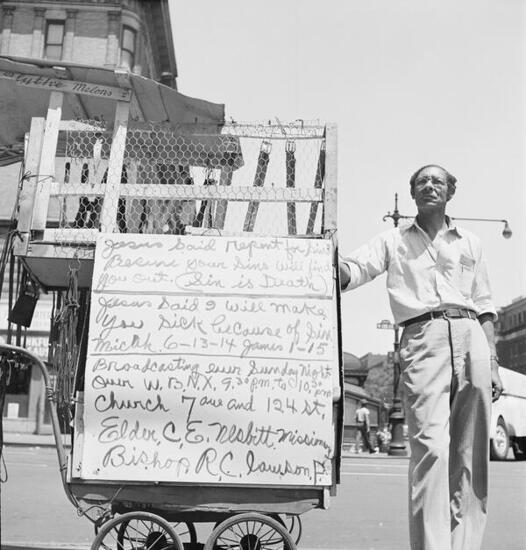 Melons
Jesus Said repent for Sin
Becure your Sins will find
you out. (Sin is Death)
Jesus Said I will make
You Sick because of Sin
Micah. 6-13-14 James 1-15
Broadcasting ever Sunday Night
Over W.B.N.X. 9.30 P.m. to 10.30 P.m.
Church 7 ave and 124 st.
Elder, C. E. Nesbitt, Mission
Bishop R. C. Lawson, P.